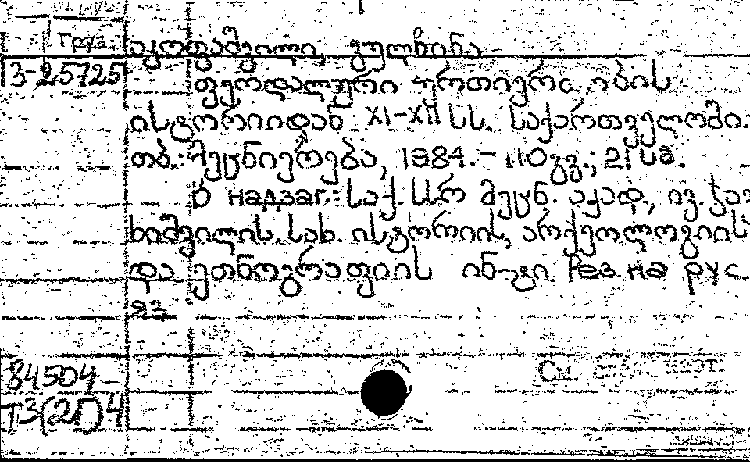 Груз.
აკოფაშვილი, გულჩინა
3-25725
ფეოდალური ურთიერთობის
ისტორიიდან XI-XII სს. საქართველოში.
თბ.: მეცნიერება, 1984. - 110 გვ.; 21 სმ.
В надзаг.: საქ. სსრ მეცნ. აკად., ივ. ჯავა
ხიშვილის სახ. ისტორიის, არქეოლოგიის
და ეთნოგრაფიის ინ-ტი. Рез. на рус.
яз.
84504
Т3(2Г)4
См.